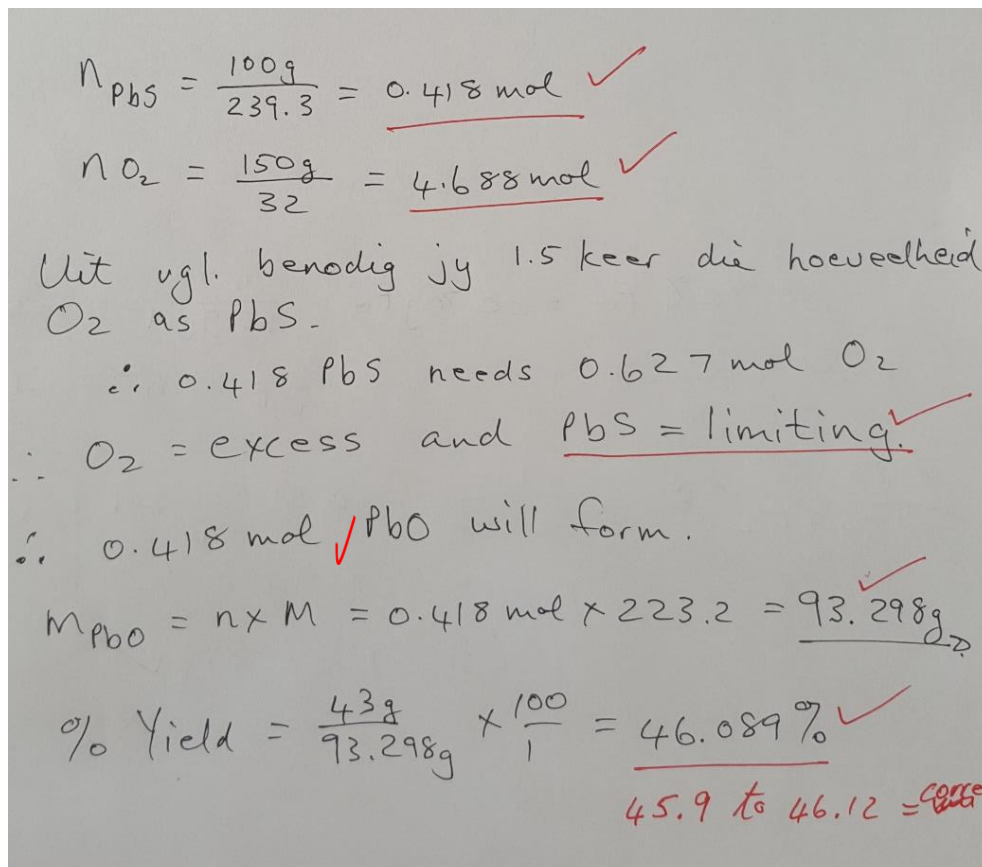 nPbS = 100g / 239.3 = 0.418 mol ✓
nO2 = 150g / 32 = 4.688 mol ✓
Uit vgl. benodig jy 1.5 keer die hoeveelheid
O2 as PbS.
∴ 0.418 PbS needs 0.627 mol O2
∴ O2 = excess and PbS = limiting. ✓
∴ 0.418 mol ✓ PbO will form.
mPbO = n x M = 0.418 mol x 223.2 = 93.298g ✓
% Yield = 43g / 93.298g x 100 / 1 = 46.089% ✓
45.9 to 46.12 =